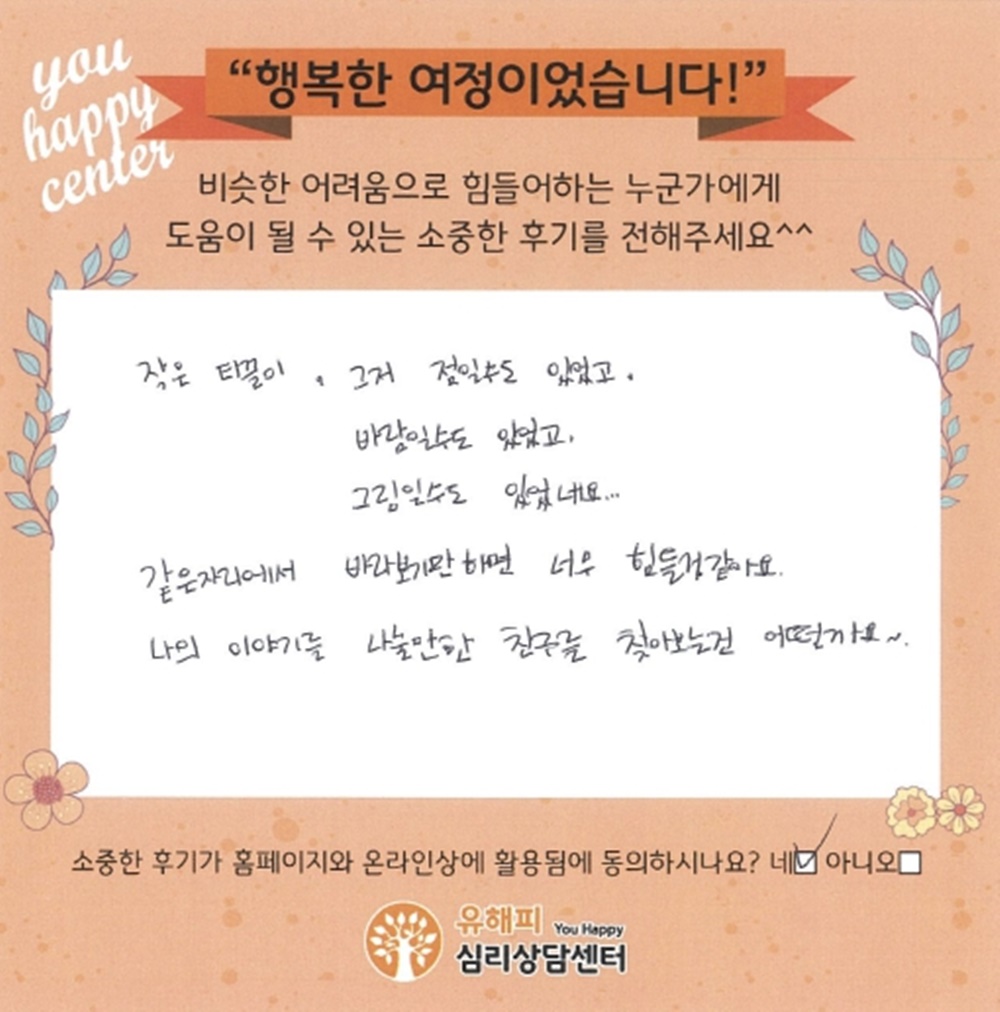 you
happy
center
“행복한 여정이었습니다!”
비슷한 어려움으로 힘들어하는 누군가에게
도움이 될 수 있는 소중한 후기를 전해주세요^^
작은 티끌이, 그저 점일수도 있었고,
바람일수도 있었고,
그림일수도 있었네요...
같은자리에서 바라보기만하면 너무 힘들것같아요.
나의 이야기를 나눌만한 친구를 찾아보는건 어떨까요~.
소중한 후기가 홈페이지와 온라인상에 활용됨에 동의하시나요? 네☑ 아니오☐
유해피 You Happy
심리상담센터